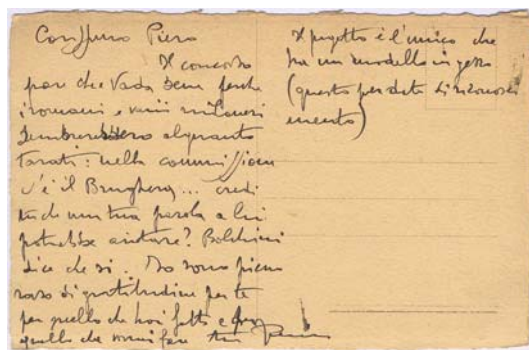 Carissimo Piero
Il concorso
pare che vada bene perché
i romani e varii milanesi
sembrerebbero alquanto
tarati: nella commissione
v'è il ... credi
tu che una tua parola a lui
potrebbe aiutare?
dice che si. Io sono pieno
raso di gratitudine per te
per quello che hai fatto e
quello che vorrai fare tuo
Il progetto è l'unico che
ha un modello in gesso
(questo per dato di riconosci
mento)